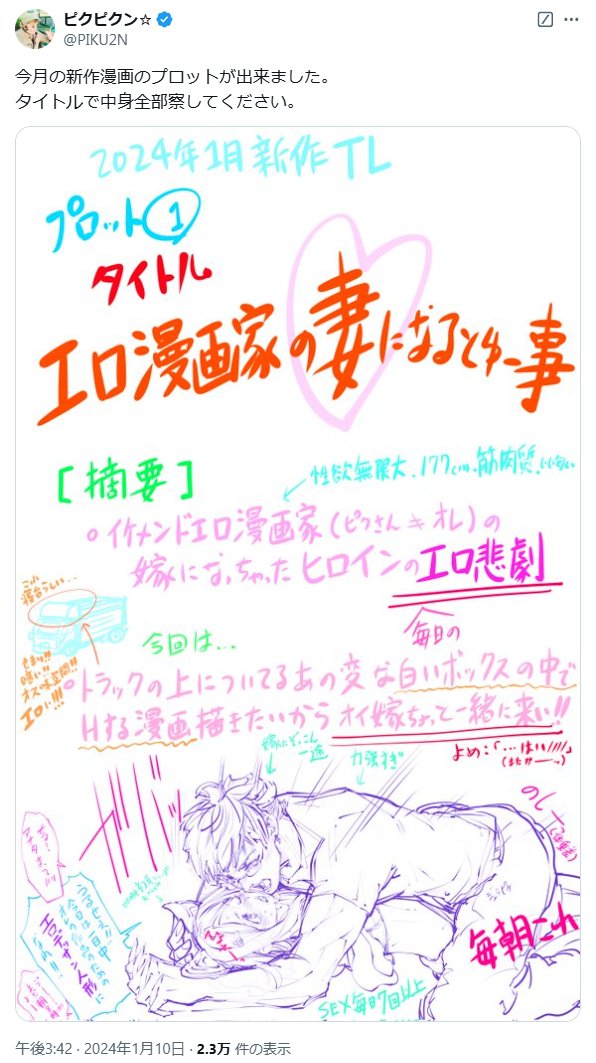 ピクピクン☆
@PIKU2N
今月の新作漫画のプロットが出来ました。
タイトルで中身全部察してください。
2024年1月新作TL
プロット①
タイトル
エロ漫画家の妻になるとゆー事
[摘要]
性欲無限大、177cm、筋肉質、
○イケメンドエロ漫画家(ピクさん≒オレ)の
嫁になっちゃったヒロインのエロ悲劇
毎日の
ここ寝台らしい…
せまい!!
暗い!!
オス味空間!!
エロい!!!
今回は…
○トラックの上についてるあの変な白いボックスの中で
Hする漫画描きたいからオイ嫁ちょっと一緒に来い!!
よめ:「…はい////」
嫁にぞっこん
一途
力強すぎ
ガバッ
のしー
(体重差)
毎朝これ
うるせぇ!!
今日は一日中
エロデッサン人形
SEX毎日7回以上
午後3:42 · 2024年1月10日 · 2.3万 件の表示